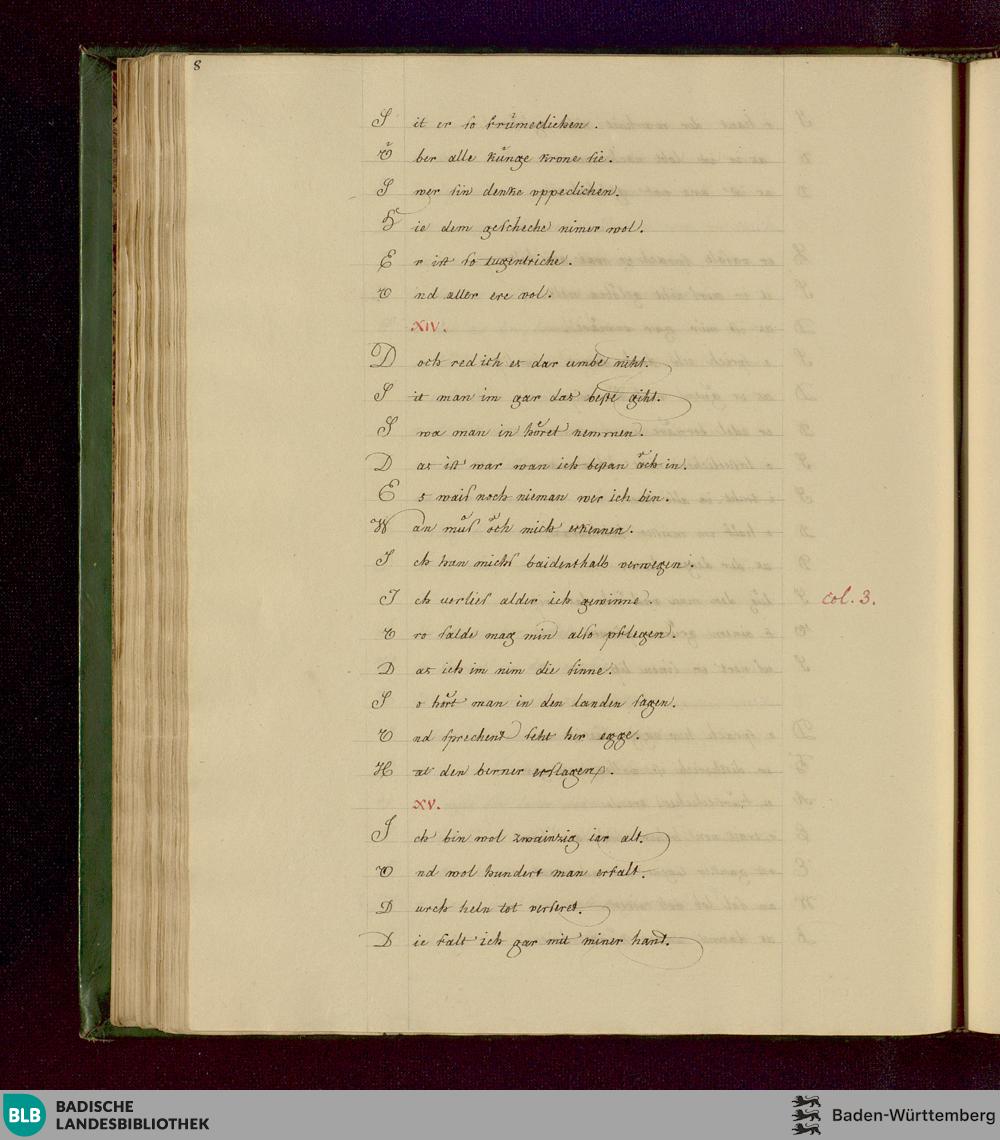 8
S it er so frúmeclichen .
V́ ber alle kúnge krone sie .
S wer sin denke vppeclichen .
H ie dem gescheche nimer wol .
E r ist so tugentriche .
V nd aller ere vol .
XIV.
D och red ich es dar umbe niht .
S it man im gar das beste giht .
S wa man in hôret nemmen .
D as ist war wan ich bestan ôch in .
E s wais noch nieman wer ich bin .
M an mûs ôch mich erkennen .
I ch han michs baidenthalb verwegen .
I ch verlies alder ich gewinne .
col. 3.
V ro sälde mag min also pflegen .
D as ich im nim die sinne .
S o hôrt man in den landen sagen .
V nd sprechent seht her egge .
H at den berner erslagen .
XV.
I ch bin wol zwainzig iar alt .
V nd wol hundert man erfalt .
D urch heln tot verseret .
D ie falt ich gar mit miner hant .
BLB BADISCHE
LANDESBIBLIOTHEK
Baden-Württemberg